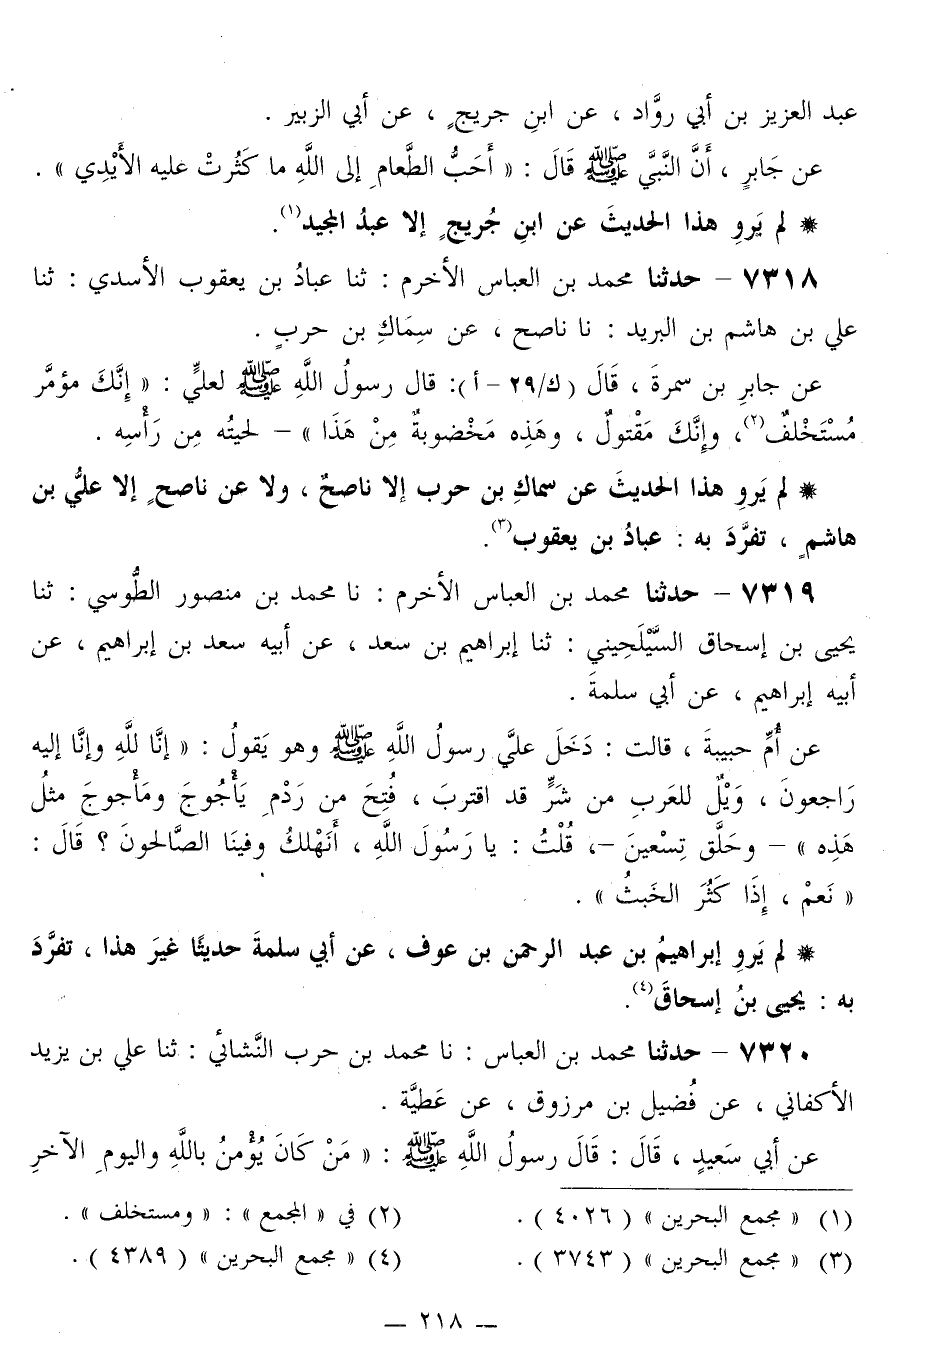 عبد العزيز بن أبي روَّاد ، عن ابنِ جريجٍ ، عن أبي الزبير .
عن جَابرٍ ، أَنَّ النَّبيَّ ﷺ قَالَ : « أَحَبُّ الطَّعامِ إلى اللَّهِ ما كَثُرتْ عليه الأَيْدِي » .
* لم يَروِ هذا الحديثَ عن ابنِ جُريجٍ إلا عبدُ المجيد(١).
٧٣١٨ – حدثنا محمد بن العباس الأخرم : ثنا عبادُ بن يعقوب الأسدي : ثنا
علي بن هاشم بن البريد : نا ناصح ، عن سِمَاكِ بن حربٍ .
عن جابرِ بن سمرةَ ، قَالَ (ك/٢٩ – أ): قال رسولُ اللَّهِ ﷺ لعليٍّ : « إِنَّكَ مؤمَّر
مُسْتَخْلفٌ(٢)، وإِنَّكَ مَقْتولٌ ، وهَذِه مَخْضوبةٌ مِنْ هَذَا » – لحيتُه مِن رَأْسِه .
* لم يَروِ هذا الحديثَ عن سماكِ بن حرب إلا ناصحٌ ، ولا عن ناصحٍ إلا عليُّ بن
هاشمٍ ، تفرَّدَ به : عبادُ بن يعقوب(٣).
٧٣١٩ – حدثنا محمد بن العباس الأخرم : نا محمد بن منصور الطُّوسي : ثنا
يحيى بن إسحاق السَّيْلَحِيني : ثنا إبراهيم بن سعد ، عن أبيه سعد بن إبراهيم ، عن
أبيه إبراهيم ، عن أبي سلمةَ .
عن أُمِّ حبيبةَ ، قالت : دَخَلَ عليَّ رسولُ اللَّهِ ﷺ وهو يَقولُ : « إنَّا للَّهِ وإنَّا إليه
رَاجعونَ ، وَيْلٌ للعَربِ من شَرٍّ قد اقتربَ ، فُتِحَ من رَدْمِ يَأْجُوجَ ومَأْجوجَ مثلُ
هَذِه » – وحَلَّق تِسْعينَ –، قُلْتُ : يا رَسُولَ اللَّهِ ، أَنَهْلكُ وفينَا الصَّالحونَ ؟ قَالَ :
« نَعمْ ، إِذَا كَثُرَ الخَبثُ » .
* لم يَروِ إبراهيمُ بن عبد الرحمن بن عوف ، عن أبي سلمةَ حديثًا غيرَ هذا ، تفرَّدَ
به : يحيى بنُ إسحاقَ(٤).
٧٣٢٠ – حدثنا محمد بن العباس : نا محمد بن حرب النَّشائي : ثنا علي بن يزيد
الأكفاني ، عن فُضيل بن مرزوق ، عن عَطيَّة .
عن أبي سَعيدٍ ، قَالَ : قَالَ رسولُ اللَّهِ ﷺ : « مَنْ كَانَ يُؤْمنُ باللَّهِ واليومِ الآخرِ
(١) « مجمع البحرين » (٤٠٢٦) .
(٢) في « المجمع » : « ومستخلف » .
(٣) « مجمع البحرين » (٣٧٤٣) .
(٤) « مجمع البحرين » (٤٣٨٩) .
– ٢١٨ –